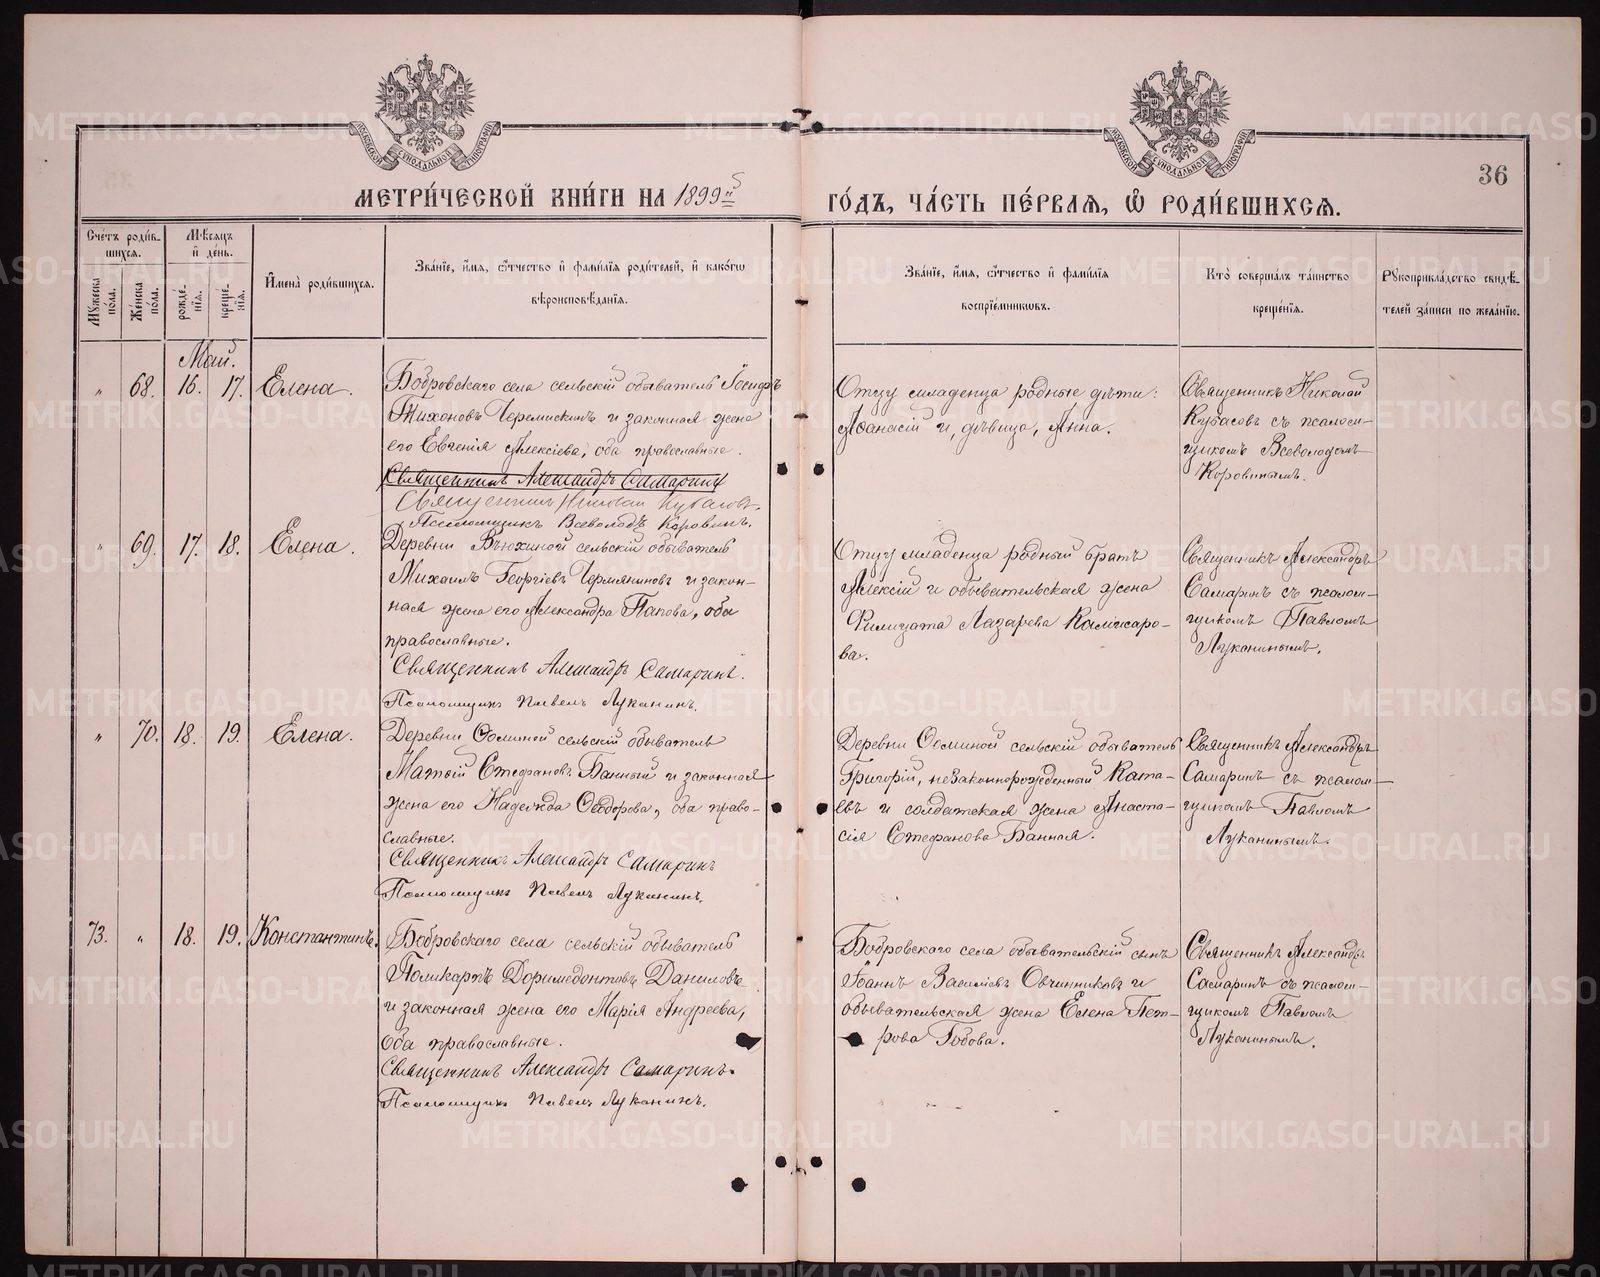 МЕТРИ́ЧЕСКОЙ КНИ́ГИ НА 1899й
ГО́ДЪ, ЧА́СТЬ ПЕ́РВАЯ, Ѽ РОДИ́ВШИХСЯ.
36
Сче́тъ роди́в-
шихся.
Мѣсяцъ
и де́нь.
Мꙋжеска
по́ла.
Же́нска
по́ла.
рожде́-
нїя.
креще́-
нїя.
Имена̀ роди́вшихся.
Зва́нїе, и́мя, ѻ́тчество и фами́лїя роди́телей, и како́гѡ
вѣроисповѣ́данїя.
Зва́нїе, и́мя, ѻ́тчество и фами́лїя
воспрїе́мниковъ.
Кто̀ соверша́лъ та́инство
креще́нїя.
Рꙋкоприкла́дство свидѣ́-
телей за́писи по жела́нїю.
Май.
" 68. 16. 17. Елена.
Бобровскаго села сельскій обыватель Іосифъ
Тихоновъ Черемискинъ и законная жена
его Евгенія Алексіева, оба православные.
Священникъ Александръ Самаринъ
Священникъ Николай Кубасовъ.
Псаломщикъ Всеволодъ Коровинъ.
Отцу младенца родные дѣти:
Аѳанасій и, дѣвица, Анна.
Священникъ Николай
Кубасовъ съ псалом-
щикомъ Всеволодомъ
Коровинымъ.
" 69. 17. 18. Елена.
Деревни Вьюхиной сельскій обыватель
Михаилъ Георгіевъ Чермяниновъ и закон-
ная жена его Александра Попова, оба
православные.
Священникъ Александръ Самаринъ.
Псаломщикъ Павелъ Луканинъ.
Отцу младенца родный братъ
Алексій и обывательская жена
Филицата Лазарева Комисаро-
ва.
Священникъ Александръ
Самаринъ съ псалом-
щикомъ Павломъ
Луканинымъ.
" 70. 18. 19. Елена.
Деревни Фоминой сельскій обыватель
Матѳій Стефановъ Банный и законная
жена его Надежда Ѳеодорова, оба право-
славные.
Священникъ Александръ Самаринъ
Псаломщикъ Павелъ Луканинъ.
Деревни Фоминой сельскій обыватель
Григорій, незаконнорожденный Ката-
евъ и солдатская жена Анаста-
сія Стефанова Банная.
Священникъ Александръ
Самаринъ съ псалом-
щикомъ Павломъ
Луканинымъ.
73. " 18. 19. Константинъ.
Бобровскаго села сельскій обыватель
Поликарпъ Доримедонтовъ Даниловъ
и законная жена его Марія Андреева,
оба православные.
Священникъ Александръ Самаринъ.
Псаломщикъ Павелъ Луканинъ.
Бобровскаго села обывательскій сынъ
Іоаннъ Василіевъ Овчинниковъ и
обывательская жена Елена Пет-
рова Гобова.
Священникъ Александръ
Самаринъ съ псалом-
щикомъ Павломъ
Луканинымъ.